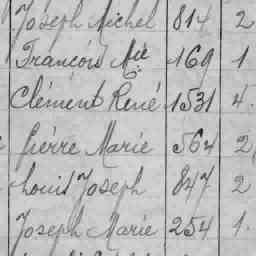 Joseph Michel 814 2
François Mie 169 1
Clément René 1531 4.
Pierre Marie 564 2
Louis Joseph 847 2
Joseph Marie 254 1.